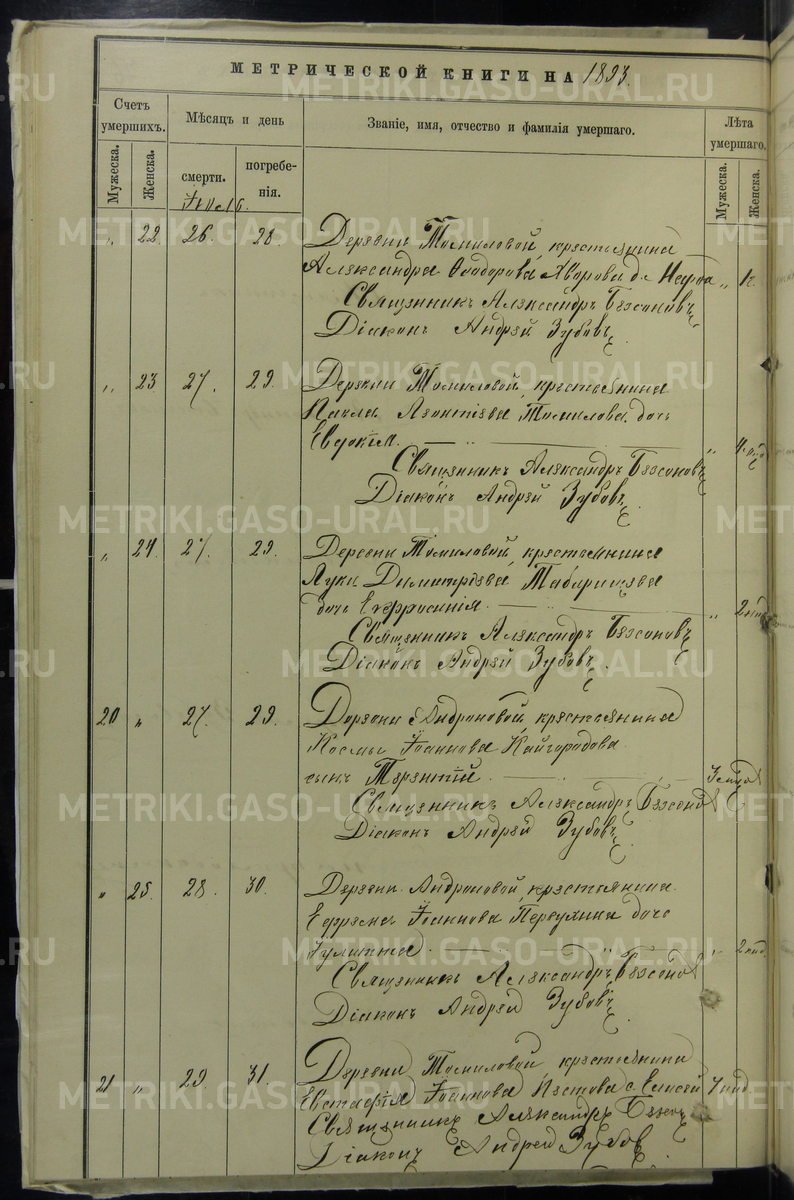 МЕТРИЧЕСКОЙ КНИГИ НА 1893.
Счетъ умершихъ.
Мѣсяцъ и день
Званіе, имя, отчество и фамилія умершаго.
Лѣта умершаго.
Мужеска.
Женска.
смерти.
погребенія.
Мужеска.
Женска.
Іюль.
„ 22 26 28 Деревни Томиловой, крестьянина
Александра Ѳеодорова
Священникъ Александръ Безсоновъ
Діаконъ Андрей Зубовъ
„ 23 27. 29. Деревни Томиловой, крестьянина
Павла Леонтіева Томилова, дочь
Евдокія. 4. нед
Священникъ Александръ Безсоновъ
Діаконъ Андрей Зубовъ
„ 24. 27. 29. Деревни Томиловой, крестьянина
Луки Димитріева
дочь Евфросинія 2 нед
Священникъ Александръ Безсоновъ
Діаконъ Андрей Зубовъ.
20 „ 27. 29. Деревни Андроновой, крестьянина
Космы Іоаннова Кайгородова
сынъ Терентій
Священникъ Александръ Безсонов
Діаконъ Андрей Зубовъ
„ 25. 28. 30. Деревни Андроновой, крестьянина
Ефрема Іоаннова дочь
Іулитта 2 нед.
Священникъ Александръ Безсонов
Діаконъ Андрей Зубовъ
21 „ 29 31. Деревни Томиловой, крестьянина
Евстафія Іоаннова с. Елисей 7 нед.
Священникъ Александръ
Діаконъ Андрей Зубов
METRIKI.GASO-URAL.RU